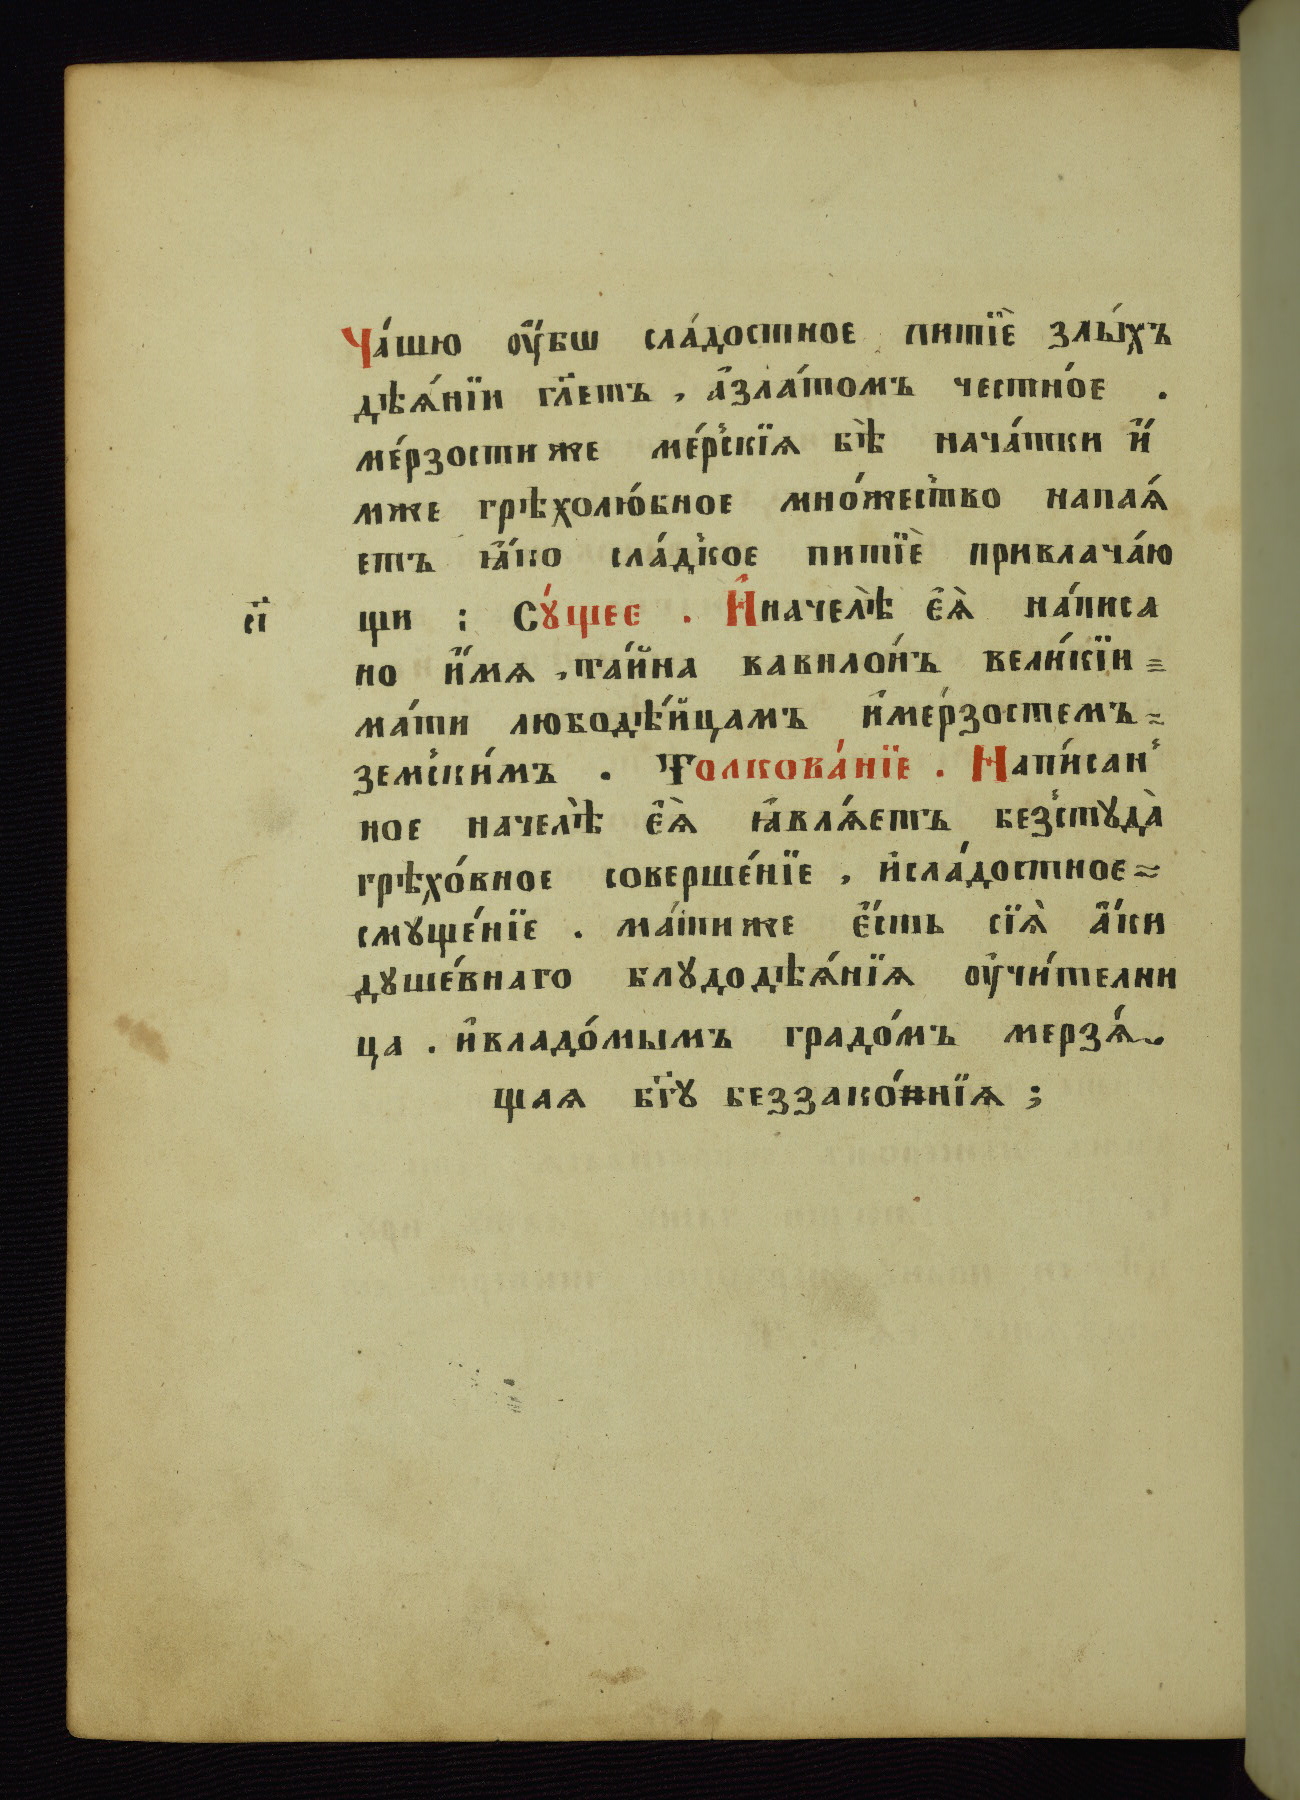 Ча́шю ᲂу҆́бѡ сла́достное питїѐ злы́хъ
дѣѧ́нїи гл҃етъ , а҆зла́томъ честно́е .
ме́рзости же ме́рскїѧ бѣ̀ нача́тки и҆́
мже грѣхолю́бное мно́жество напаѧ́
етъ ꙗ҆́ко сла́дкое питїѐ привлача́ю
с҃і щи : Сꙋ́щее . И҆начелѣ̀ є҆ѧ̀ на́писа
но и҆́мѧ , та́йна вавило́нъ вели́кїи =
ма́ти любодѣ́йцамъ и҆ме́рзостемъ =
земски́мъ . Толкова́нїе . Напи́сан
ное начелѣ̀ є҆ѧ̀ ꙗ҆влѧ́етъ безстꙋда̀
грѣхо́вное соверше́нїе , и҆сла́достное =
смꙋще́нїе . ма́ти же є҆́сть сїѧ̀ а҆́ки
дꙋше́внаго блꙋдодѣѧ́нїѧ ᲂу҆чи́телни
ца . и҆владо́мымъ градо́мъ мерзѧ́
щаѧ бг҃ꙋ беззако́ннїѧ ;